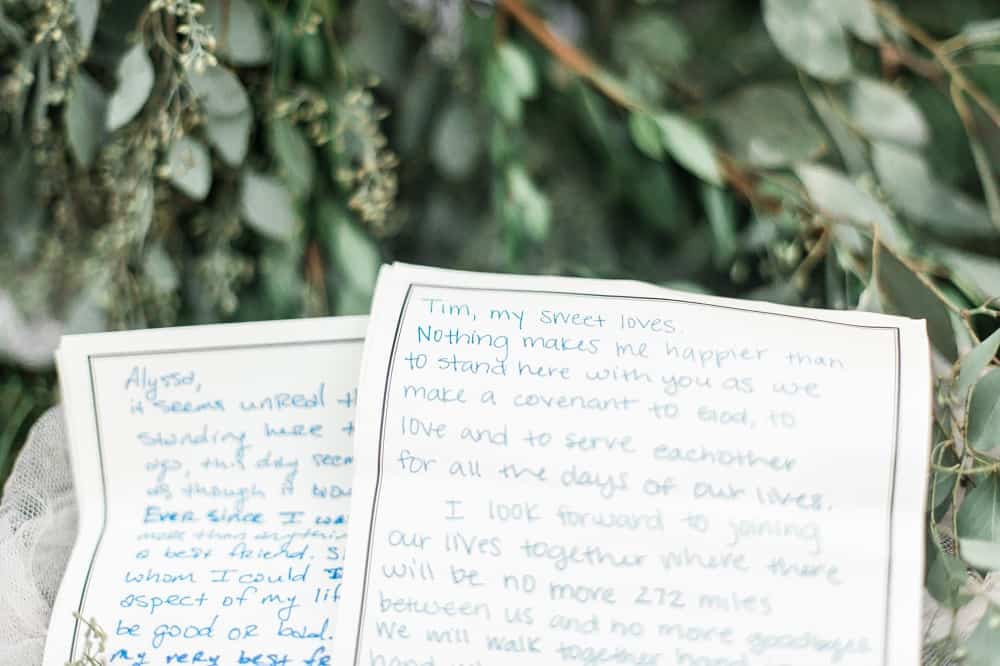 Alyssa,
it seems unreal th
standing here t
ago, this day seem
as though it wou
Ever since I wa
more than anythin
a best friend. S
whom I could
aspect of my lif
be good or bad.
my very best fr
Tim, my sweet loves.
Nothing makes me happier than
to stand here with you as we
make a covenant to God, to
love and to serve eachother
for all the days of our lives.
I look forward to joining
our lives together where there
will be no more 272 miles
between us and no more goodbyes
We will walk together hand